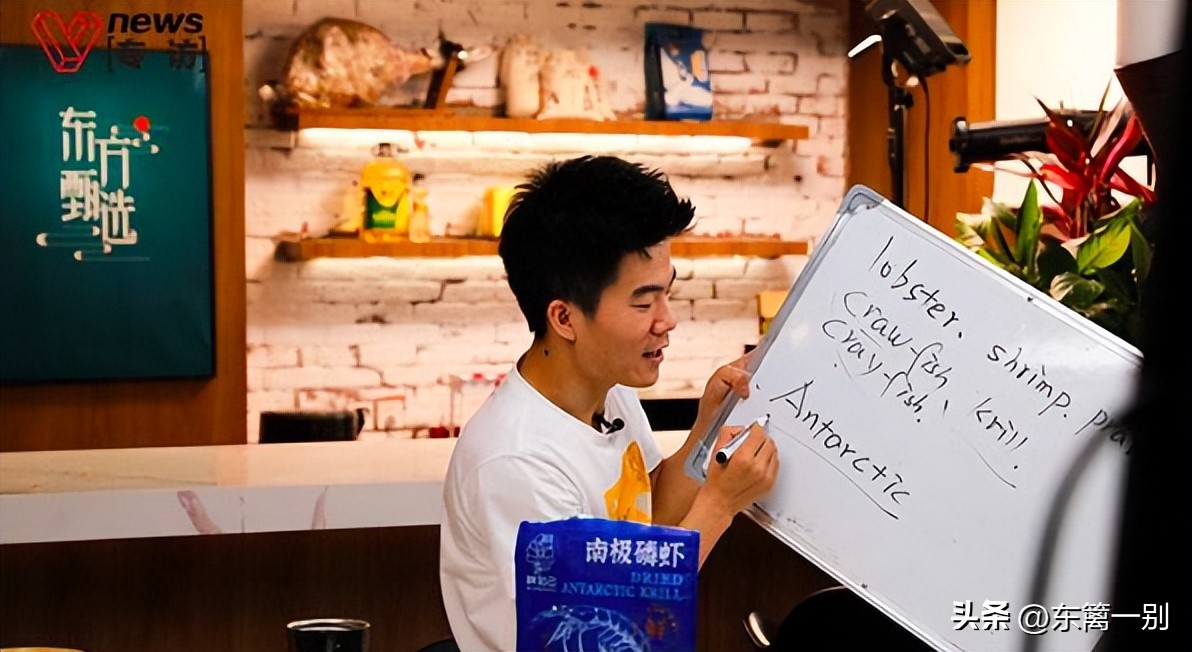 news
[专访]
东方
甄选
lobster. shrimp.
craw-fish
cray-fish. krill.
Antarctic
南极磷虾
DRIED
ANTARCTIC KRILL
头条 @东篱一别